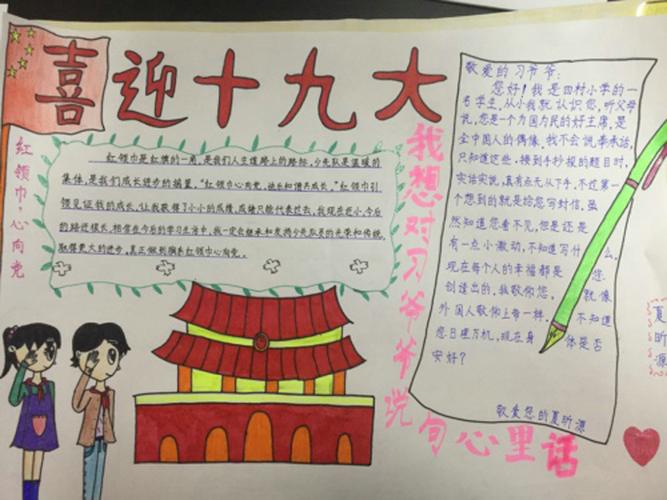 喜迎十九大
红领巾·心向党
红领巾是红旗的一角,是我们人生道路上的路标,少先队是温暖的
集体,是我们成长进步的摇篮,"红领巾心向党,
红领巾引
领见证我的成长,让我取得了小小的成绩,成绩只能代表过去,我现在还小,今后
的路还很长,相信在今后的学习生活中,我一定会继承和发扬少先队员的光荣和传统,
取得更大的进步,真正做到胸在红领巾心向党。
我想对习爷爷说句心里话
敬爱的习爷爷:
您好!我是四村小学的一
名学生,从小我就认识您,听父母
说,您是一个为国为民的好主席,是
全中国人的偶像,我不会说奉承话,
只知道这些,接到手抄报的题目时,
实话实说,真有点无从下手,不过第一
个想到的就是给您写封信。虽
然知道您看不见,但是还是
有一点小激动,不知道写什么,
现在每个人的幸福都是您
创造出的,我敬仰您,就像
外国人敬仰上帝一样。不知道
您日理万机,现在身体是否
安好?
敬爱您的夏昕源
夏
昕
源